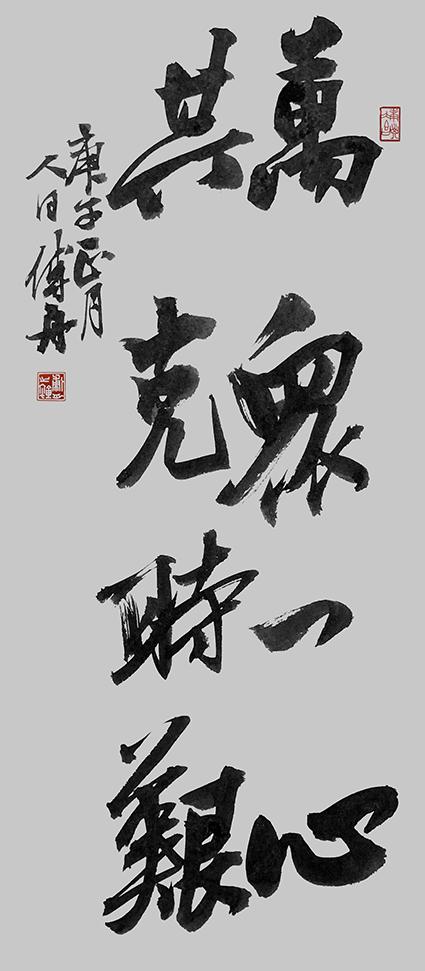 萬眾一心
共克時艱
庚子正月
人日傅